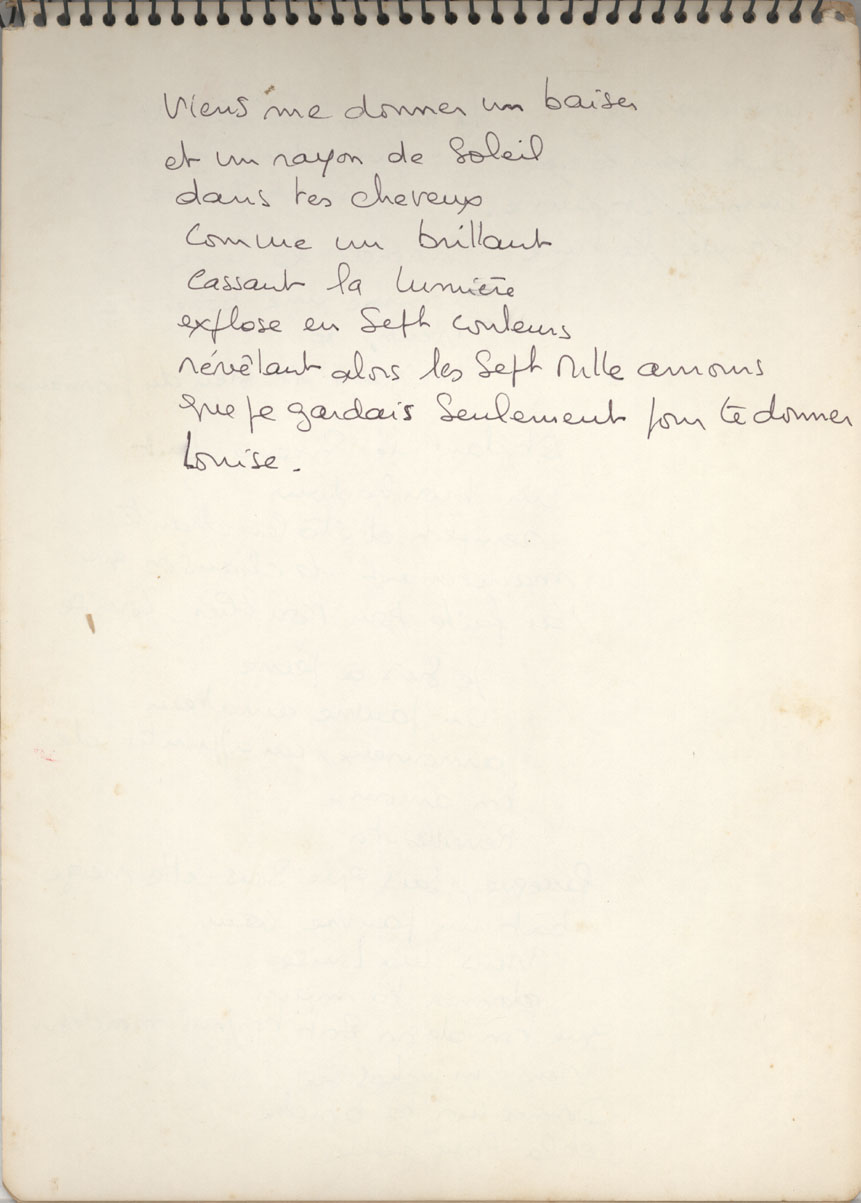 Viens me donner un baiser
et un rayon de Soleil
dans tes cheveux
Comme un brillant
Cassant la lumière
explose en Sept couleurs
révêlant alors les Sept Mille amours
que je gardais Seulement pour te donner
Louise.